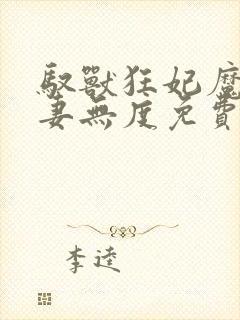 馭獸狂妃魔
妻無度免費
李逵